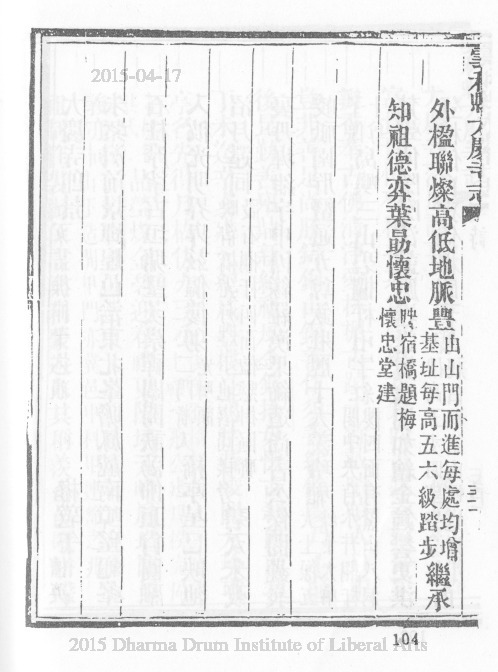 2015-04-17
外楹聯燦高低地脈豐由山門而進每處均增基址每高五六級踏步繼承
知祖德弈葉勗懷忠宿橋題梅懷忠堂建
104
2015 Dharma Drum Institute of Liberal Arts